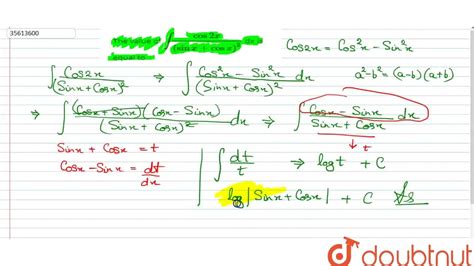 35613600
The value of ∫ cos 2x / (sin x + cos x)² dx is
equal to
Cos2x = Cos²x - Sin²x
∫ Cos2x / (Sinx + Cosx)² ⇒ ∫ Cos²x - Sin²x / (Sinx + Cosx)² dx
a²-b² = (a-b)(a+b)
⇒ ∫ (Cosx + Sinx)(Cosx - Sinx) / (Sinx + Cosx)² dx ⇒ ∫ Cosx - Sinx / Sinx + Cosx dx
↓ t
Sinx + Cosx = t
Cosx - Sinx = dt/dx
∫ dt/t ⇒ log t + C
log |Sinx + Cosx| + C
doubtnut